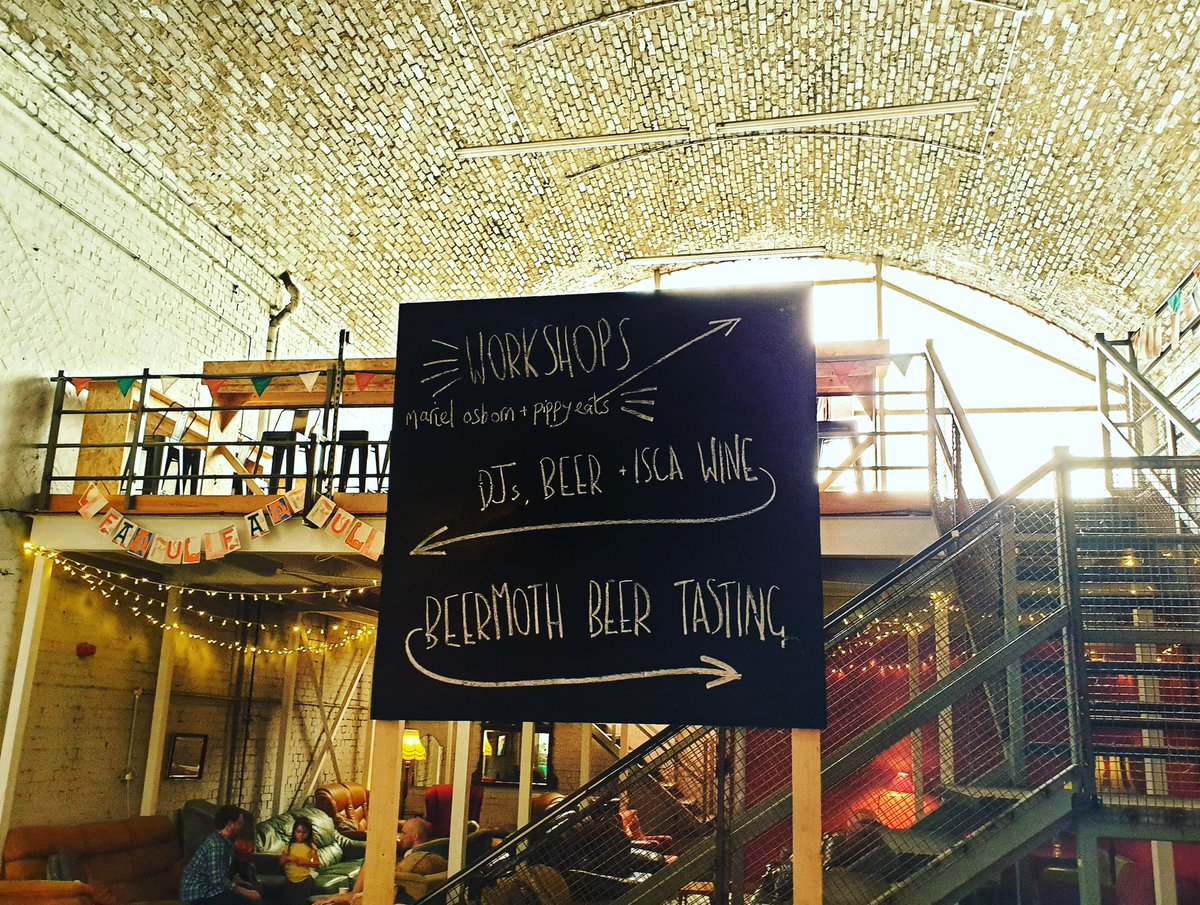 WORKSHOPS
mariel osborn + pippy eats
DJs, BEER + ISCA WINE
BEERMOTH BEER TASTING